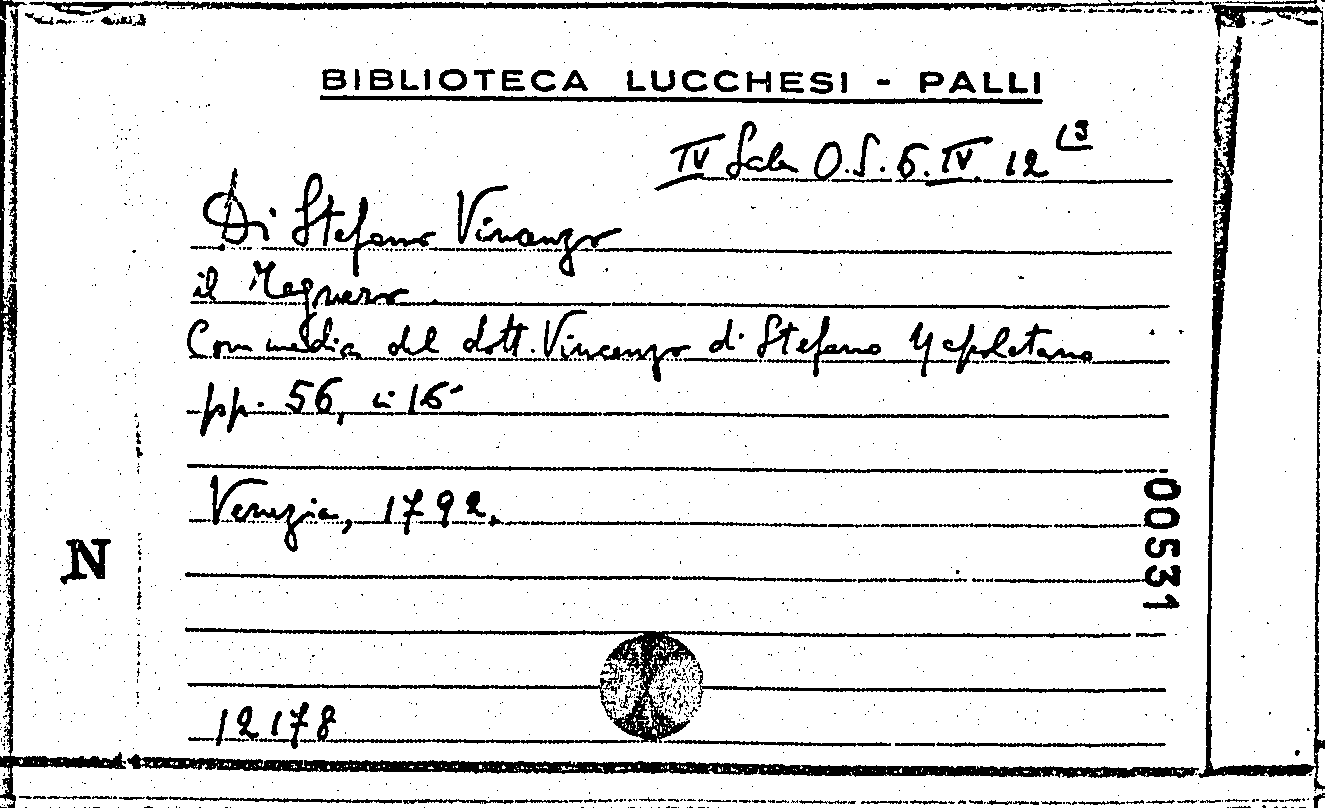 BIBLIOTECA LUCCHESI - PALLI
IV Sala O.S. 6. IV. 12 (3
Di Stefano Vincenzo
il
Commedia del dott. Vincenzo di Stefano Napoletano
pp. 56, in 16°
Venezia, 1792.
N
00531
12178